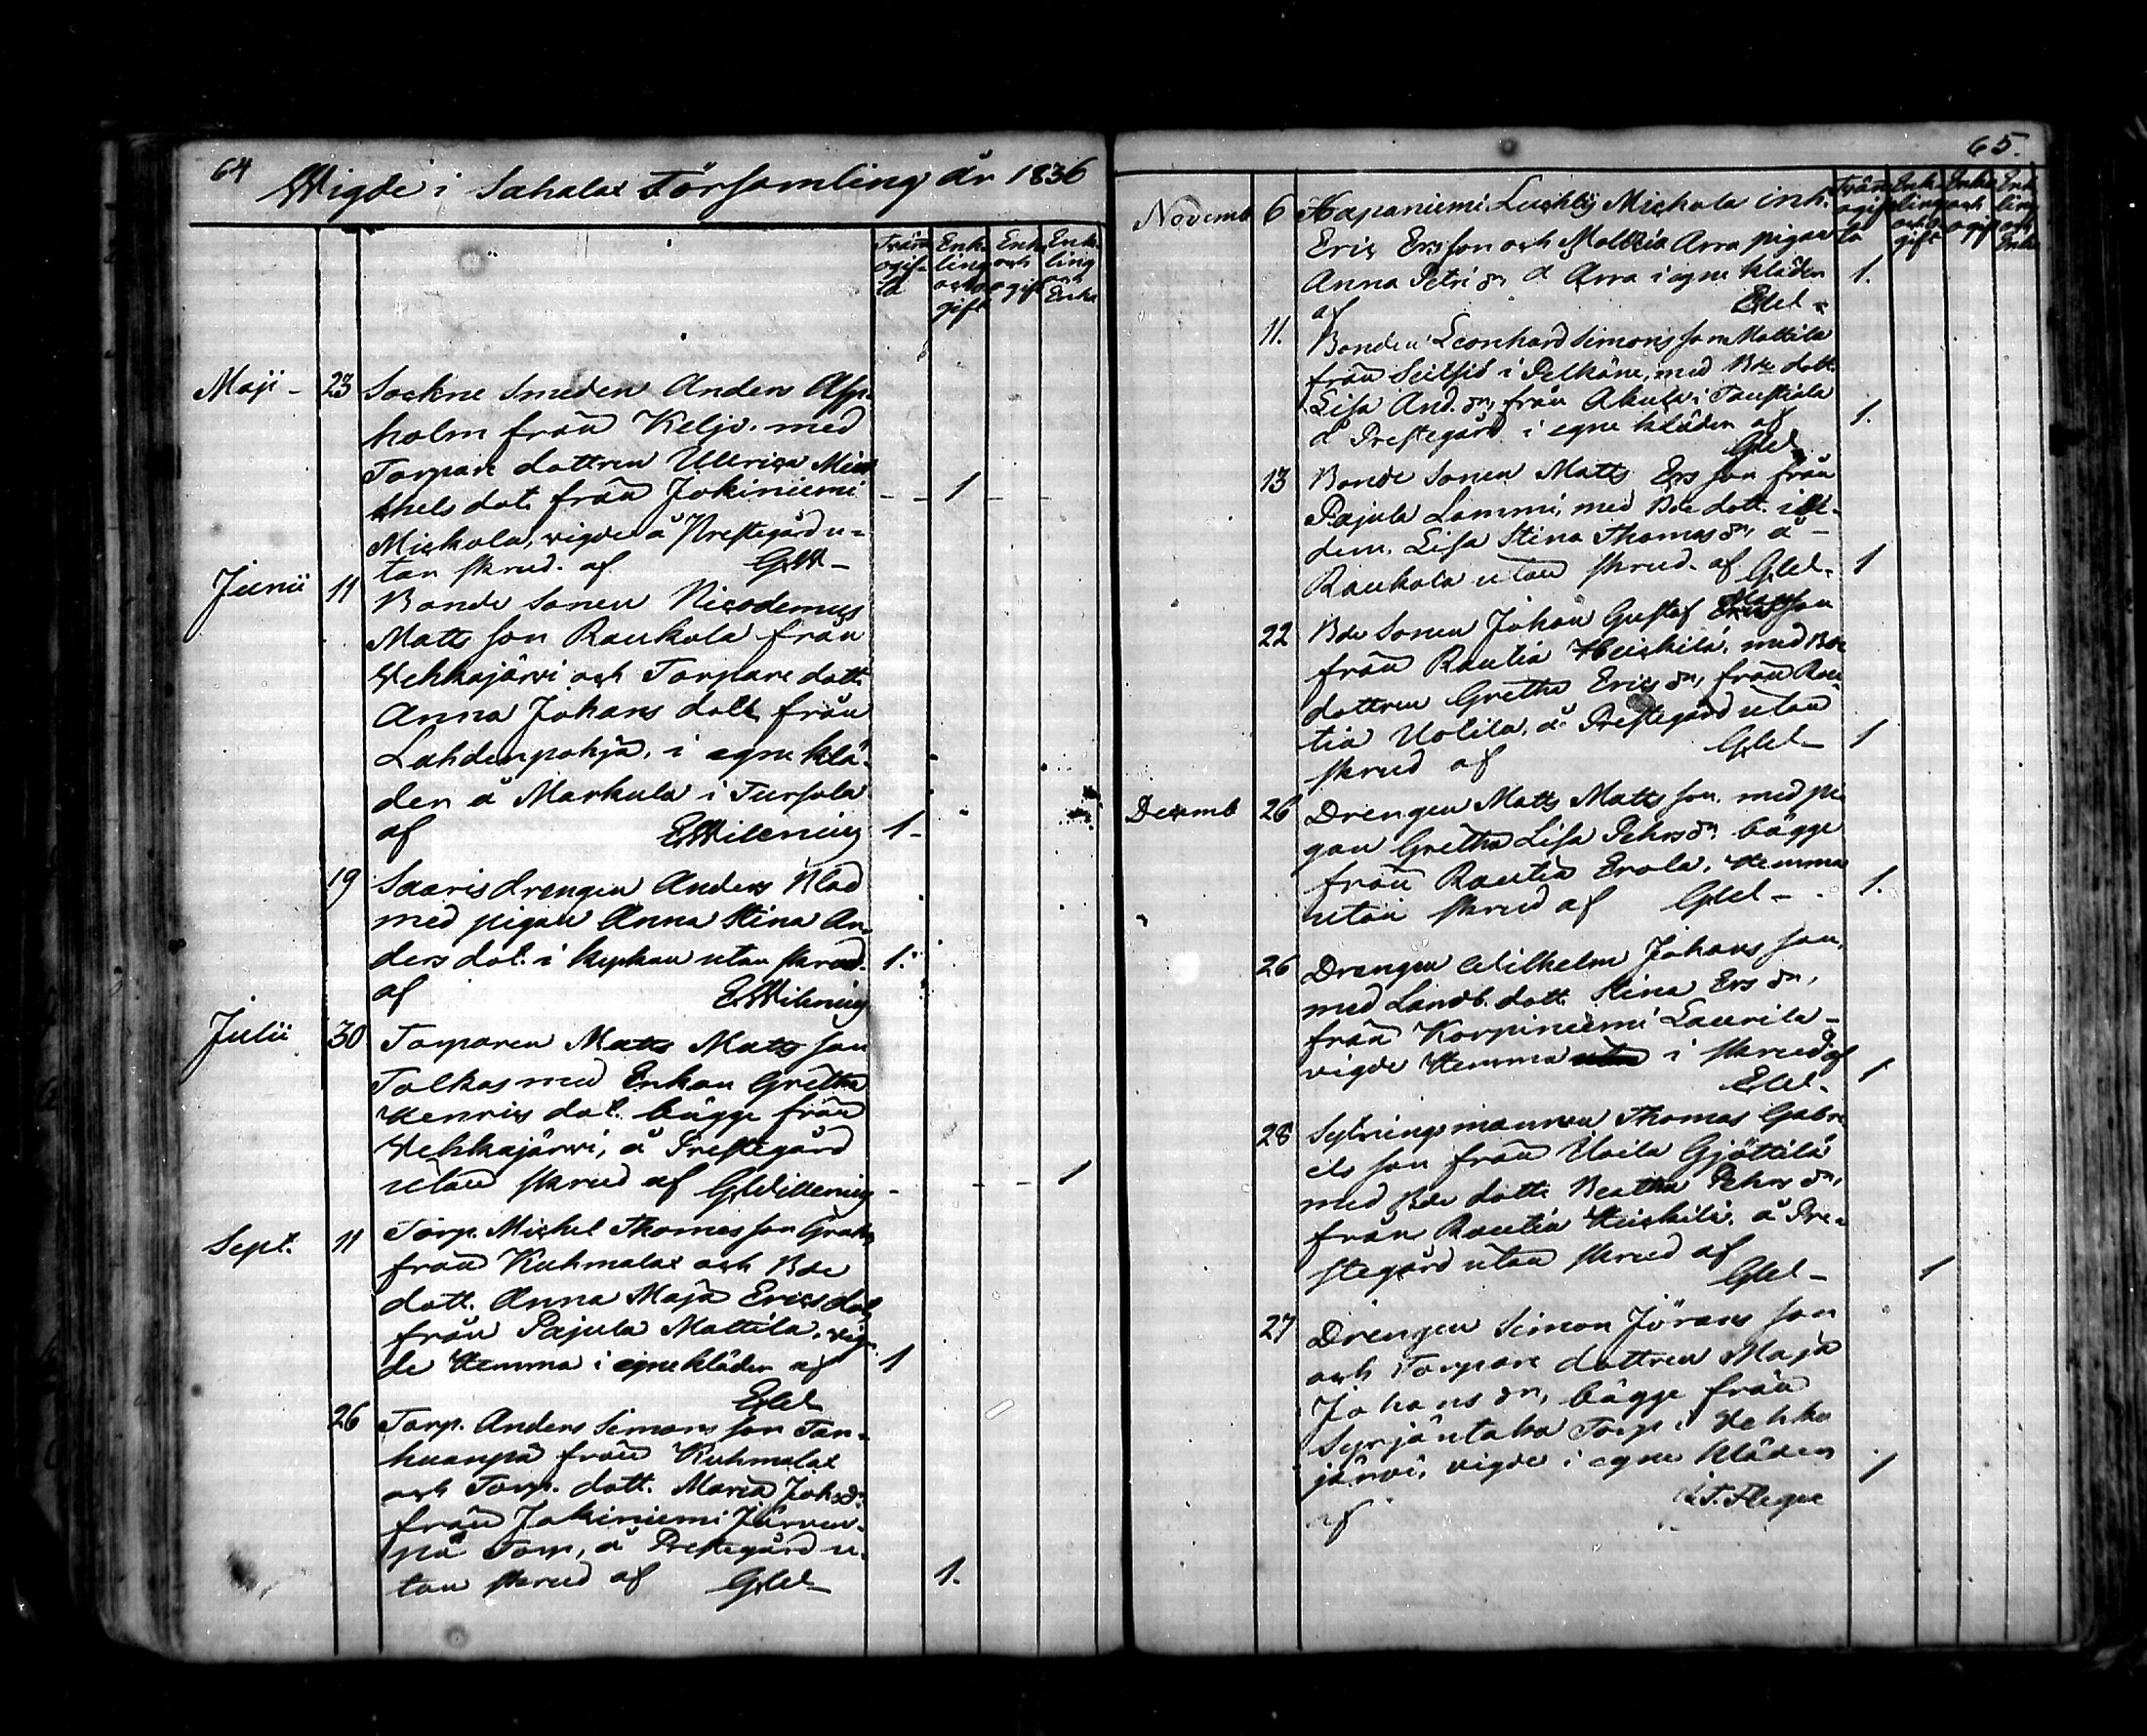 64
Wigde i Sahalax Församling år 1836
Tvänne ogif-ta
Enk-ling och ogift
Enka och ogift
Enk-ling och Enka
Maji - 23 Sockne Smeden Anders Asp-
holm från Keljo. med
Torpare dottren Ulrica Mic-
hels dot. från Jokiniemi - - 1 - -
Mickola, vigde å Prestegård u-
tan skrud. af GW-
Junii 11 Bonde Sonen Nicodemus
Matts son Raukola från
Vehkajärvi och Torpare dott.
Anna Johans dott. från
Lahdenpohja, i egne klä-
der å Markula i Tursola
af EWilenius 1-
19 Saaris drengen Anders Blad
med pigan Anna Stina An-
ders dot. i kyrkan utan skrud. 1.
af EWilenius
Julii 30 Torparen Matts Matts son
Tolkas med Enkan Gretha
Henrics dot. bägge från
Vehkajärvi, å Prestegård
utan skrud af GWillenius - - - 1
Sept. 11 Torp. Michel Thomas son
från Kuhmalax och Bde
dott. Anna Maja Erics dot,
från Pajula Mattila, vig-
de Hemma i egne kläder af 1
26 Torp. Anders Simons son Tan-
huanpä från Kuhmalax
och Torp. dott. Maria Johsdr
från Jokiniemi Järven-
pä Torp, å Prestegård u-
tan skrud af 1.
65.
Tvän ogif ta
Enk ling och ogift
Enka och ogift
Enk ling och Enka
Novemb 6 Haponiemi Mickola inh.
Eric Ersson och pigan
Anna Petri dr å Arra i egne kläder 1.
af
11. Bonden Leonhard Simons son Mattila
från i Pelkäne, med Bde dott.
Lisa And. dr, från Akula i Taustiala
å Prestegård i egne kläder af 1.
13 Bonde Sonen Matts Ers son från
Pajula Lammi, med Bde dott. ibi-
dem. Lisa Stina Thomas dr, å -
Raukola utan skrud. af 1
22 Bde Sonen Johan Gustaf
från Rautia Heickilä, med Bde
dottren Gretha Erics dr, från Rau-
tia Uotila, å Prestegård utan
skrud af 1
Decemb 26 Drengen Matts Matts son, med pi-
gan Gretha Lisa Pehrs dr bägge
från Rautia Erola, Hemma
utan skrud af 1.
26 Drengen Wilhelm Johans son,
med Landb. dott. Stina Ers dr,
från Korpiniemi Laurila -
vigde Hemma i skrud af 1
28 Sytningsmannen Thomas Gabri-
els son från Uoila Gjöttilä
med Bde dott. Beatha Pehrs dr,
från Rautia Heickilä, å Pre-
stegård utan skrud af 1
27 Drengen Simon Jörans son
och Torpare dottren Maja
Johans dr, bägge från
Syrjäntaka Torp i Vehka
järvi, vigde i egne kläder 1
af